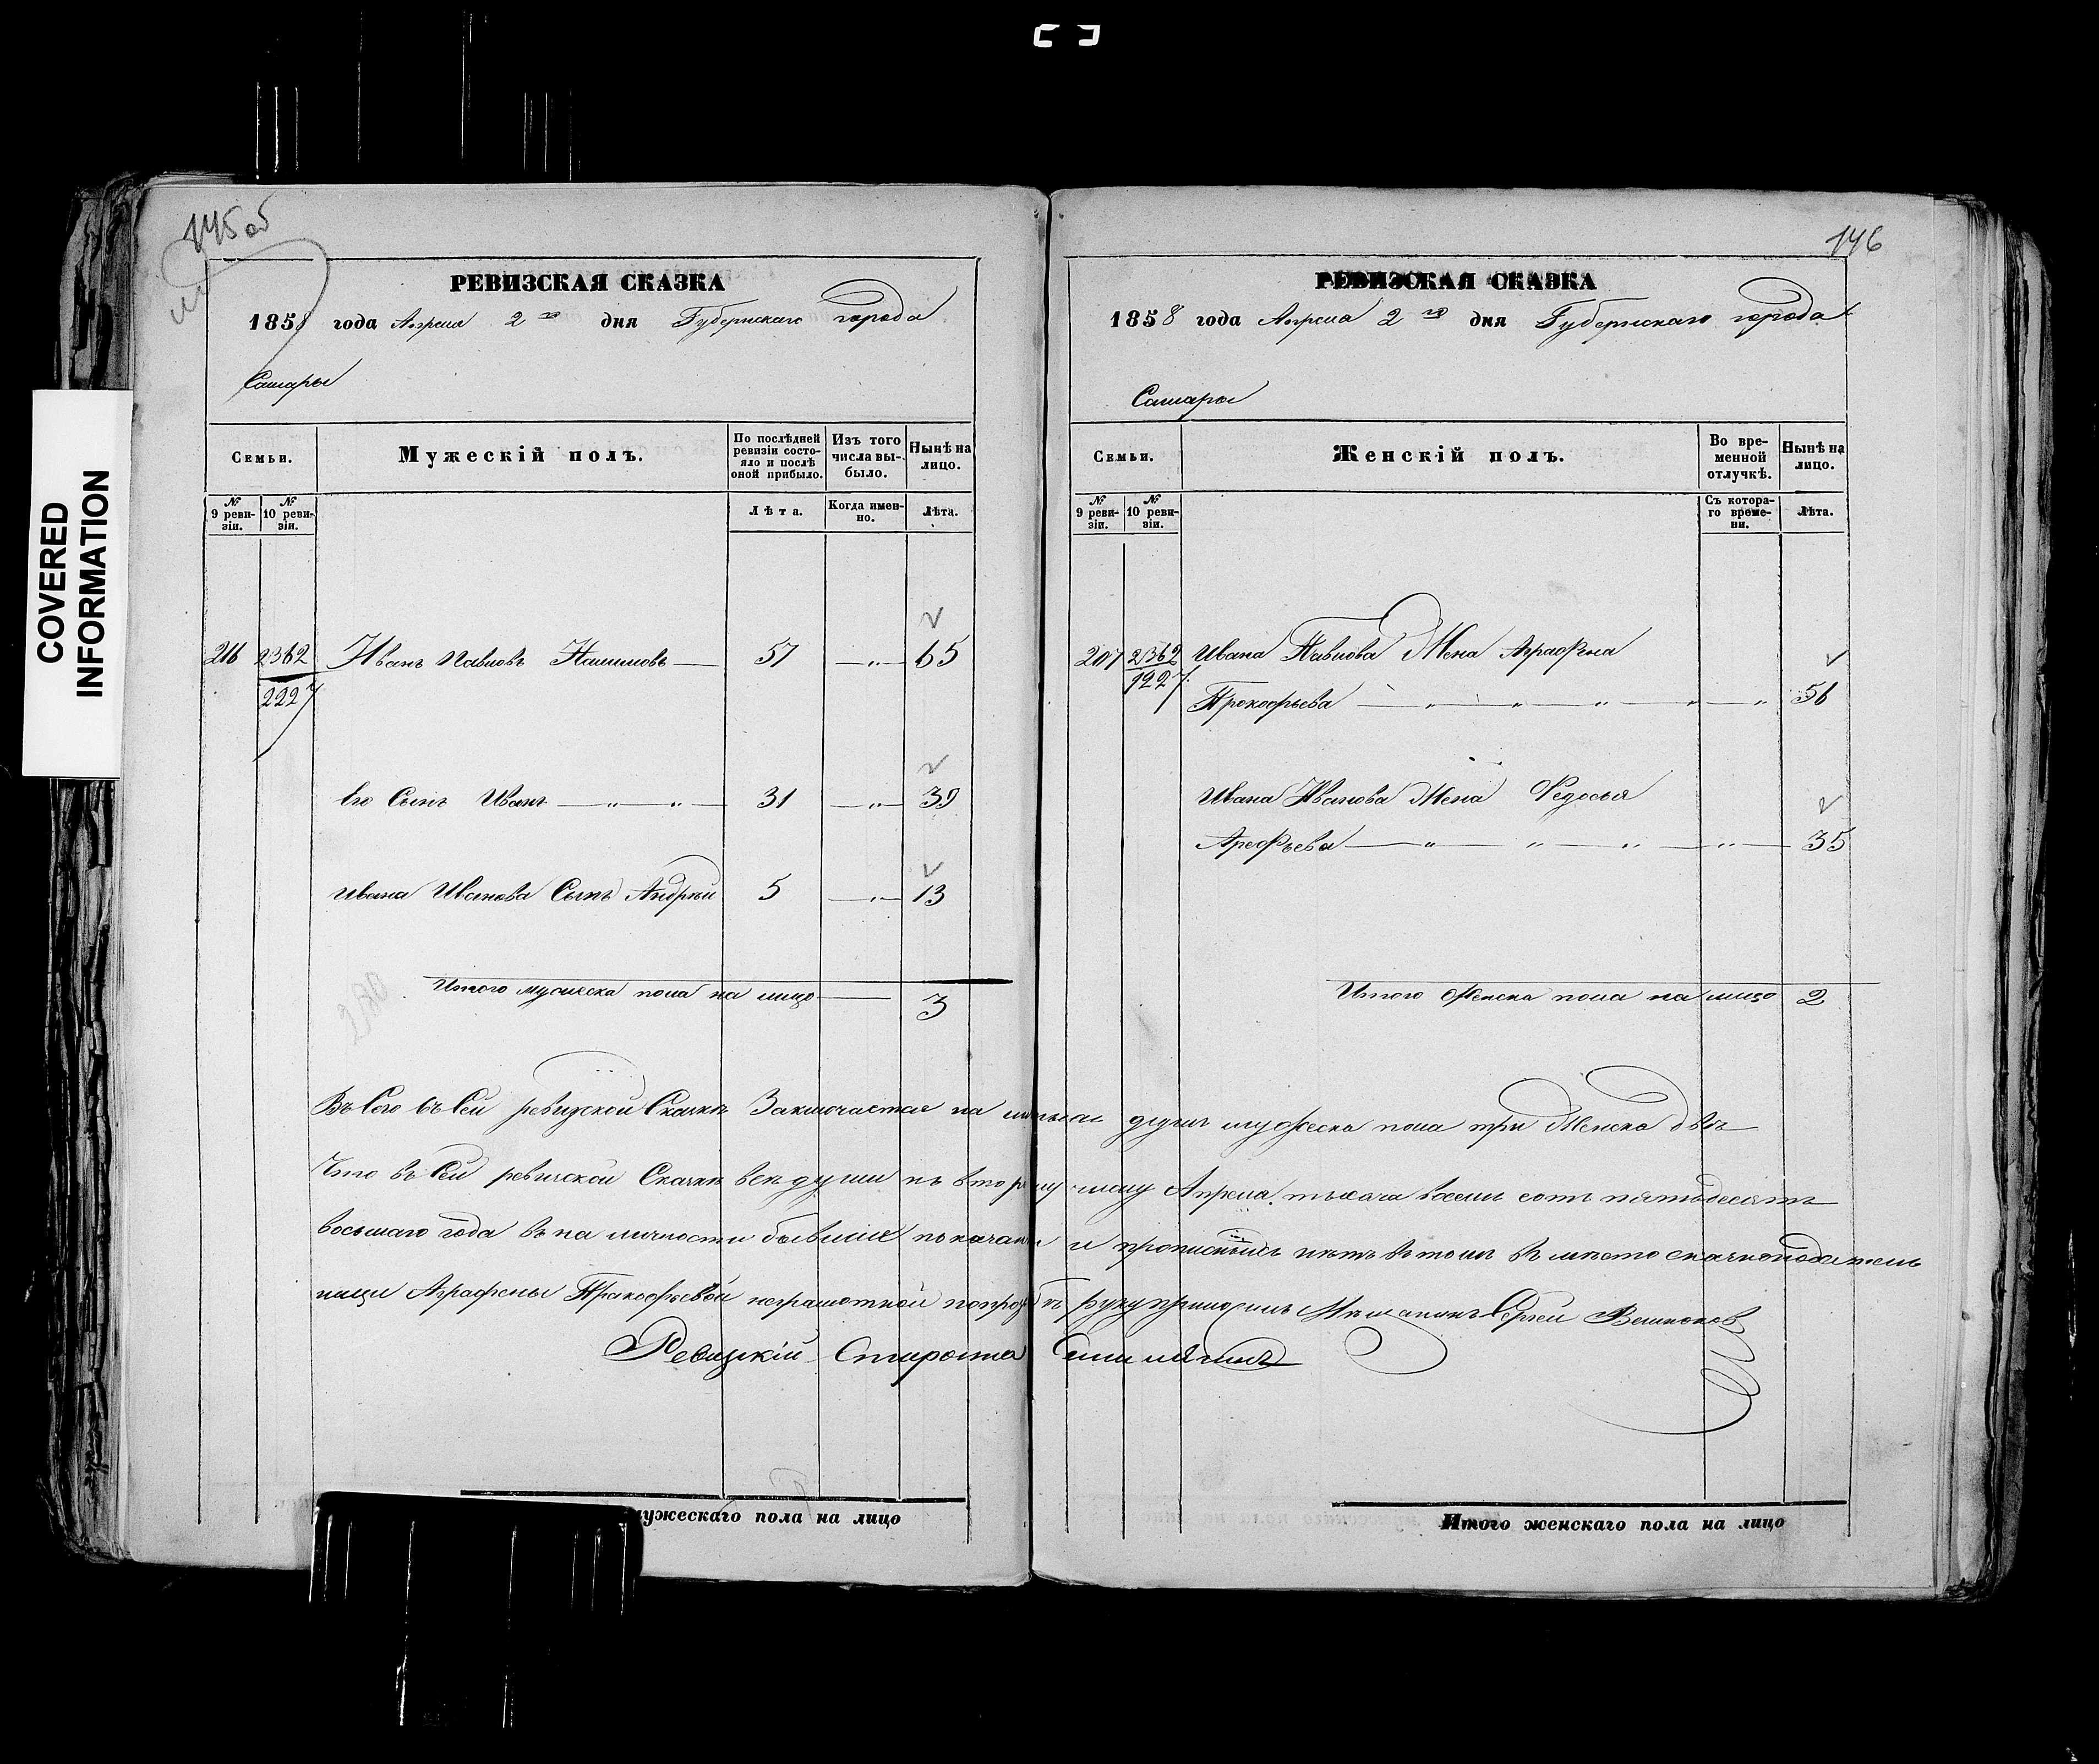 COVERED
INFORMATION
145 об
РЕВИЗСКАЯ СКАЗКА
1858 года Апреля 2го дня Губернскаго города
Самары
Семьи.
Мужескій полъ.
По послѣдней ревизіи состояло и послѣ оной прибыло.
Изъ того числа выбыло.
Нынѣ на лицо.
№ 9 ревизіи.
№ 10 ревизіи.
Лѣта.
Когда именно.
Лѣта.
216 2362 Иванъ Павловъ 57 65
2227
его Сынъ Иванъ 31 39
Ивана Иванова Сынъ Андрѣй 5 13
Итого мужеска пола на лицо 3
мужескаго пола на лицо
146
РЕВИЗСКАЯ СКАЗКА
1858 года Апреля 2го дня Губернскаго города
Самары
Семьи.
Женскій полъ.
Во временной отлучкѣ.
Нынѣ на лицо.
№ 9 ревизіи.
№ 10 ревизіи.
Съ котораго времени.
Лѣта.
Лѣта.
207 2362 Ивана Павлова Жена Аграфена
Прокофьева 56
Ивана Иванова Жена Федосья
Арефьева 35
Итого Женска пола на лицо 2
Всего въ Сей ревизской Сказкѣ Заключается на душъ мужеска пола три Женска двѣ
Что въ Сей ревизской Сказкѣ всѣ души къ второму числу Апреля тысяча восемь сотъ пятьдесятъ
восьмаго года въ на личности бывшие показаны и прописныхъ нѣтъ въ томъ въ мѣсто сказкоподатель
ницы Аграфены Прокофьевой неграмотной по прозьбѣ руку приложилъ Мѣщанинъ Сергей
Ревизкій Староста
Итого женскаго пола на лицо